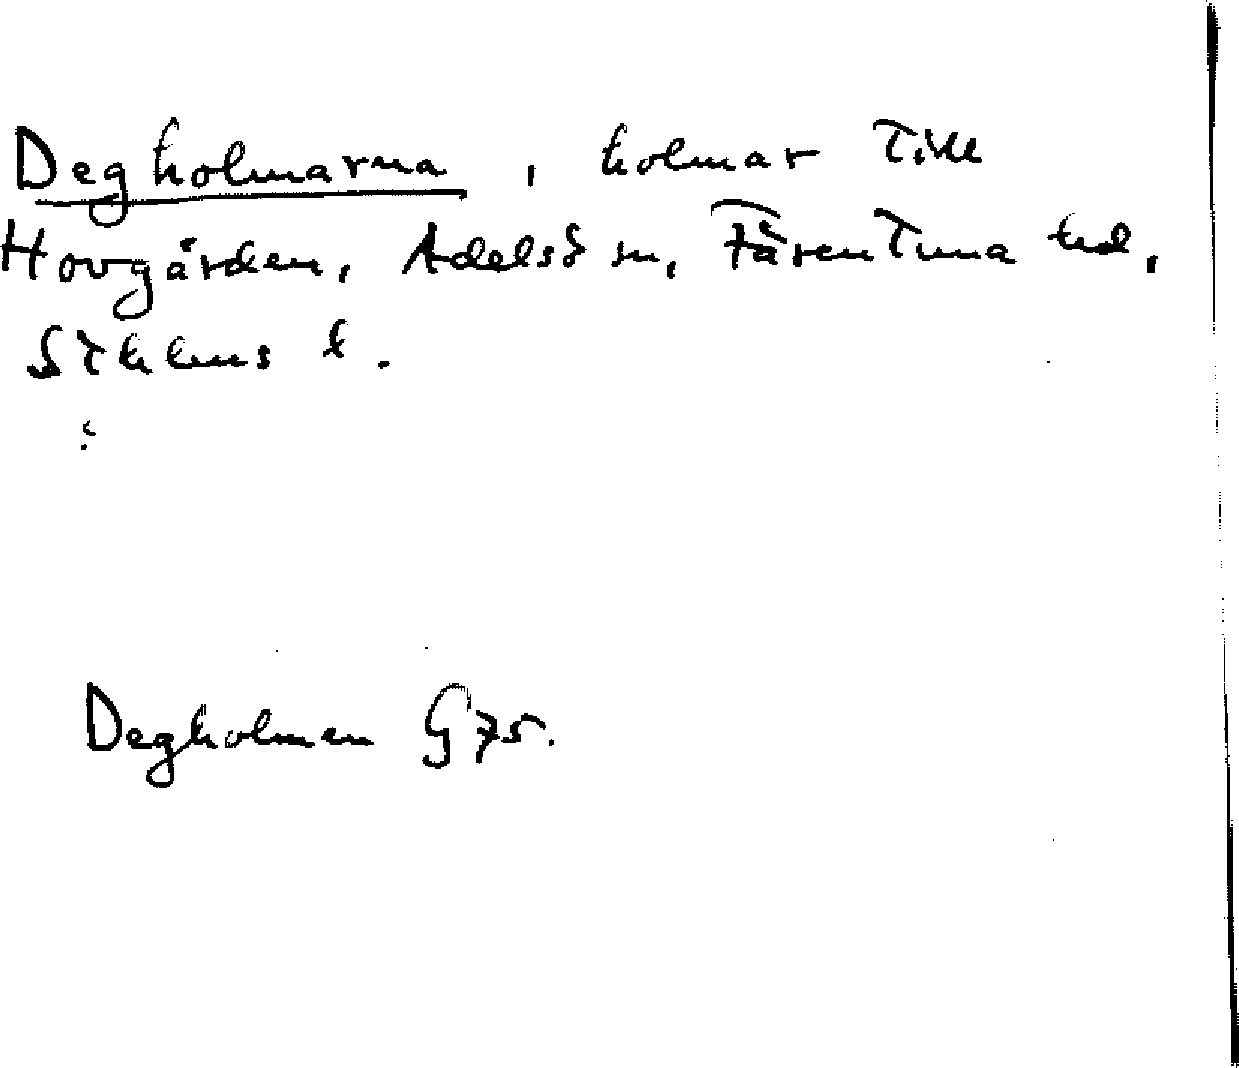 Degholmarna, holmar till
Hovgården, Adelsö sn, Färentuna hd,
Sthlms l.
:
Degholmen G 75.